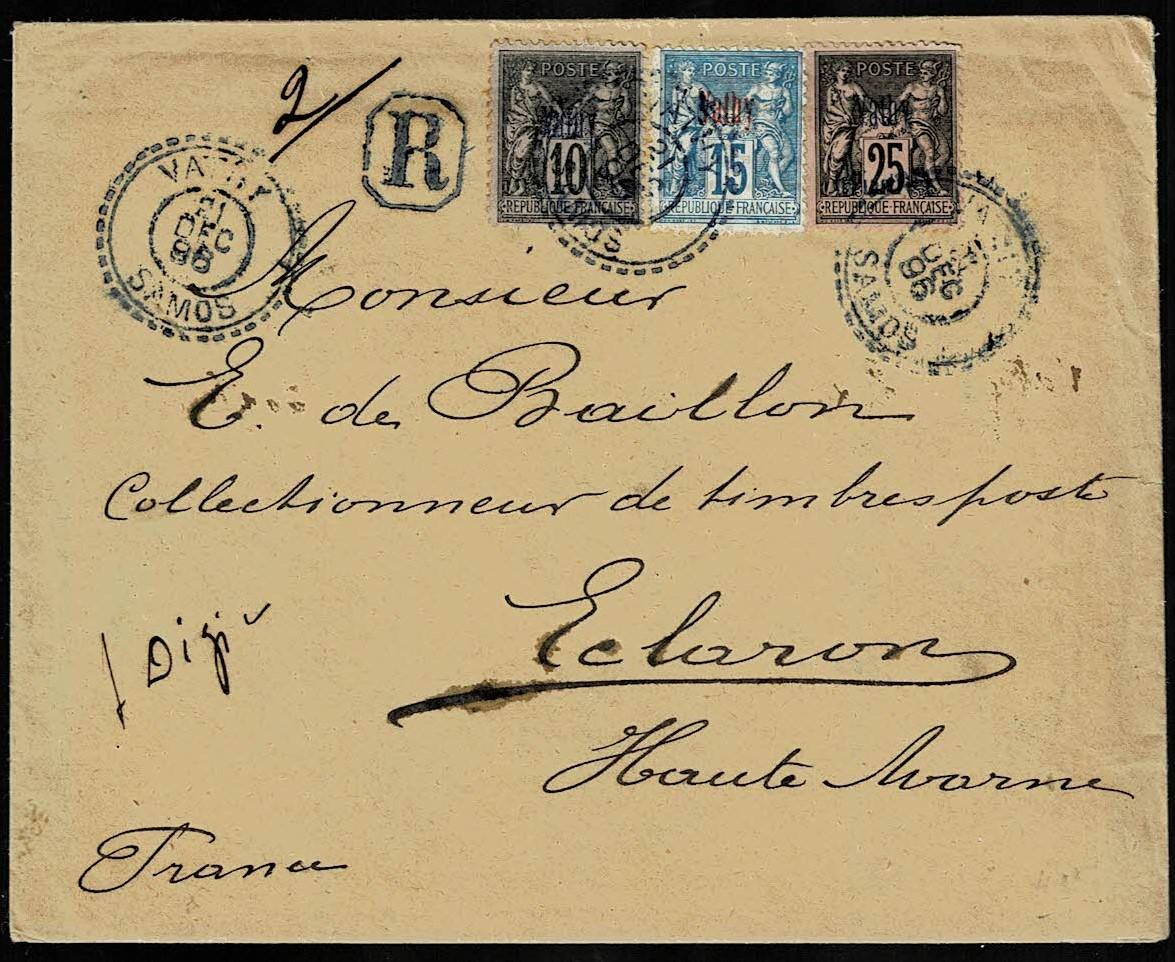 2/
R
POSTE
Vathy
10
RÉPUBLIQUE FRANÇAISE
POSTE
Vathy
15
RÉPUBLIQUE FRANÇAISE
POSTE
Vathy
25
RÉPUBLIQUE FRANÇAISE
VATHY
21
DEC
96
SAMOS
DEC
96
SAMOS
Monsieur
E. de Baillon
Collectionneur de timbres poste
Eclaron
Haute Marne
France